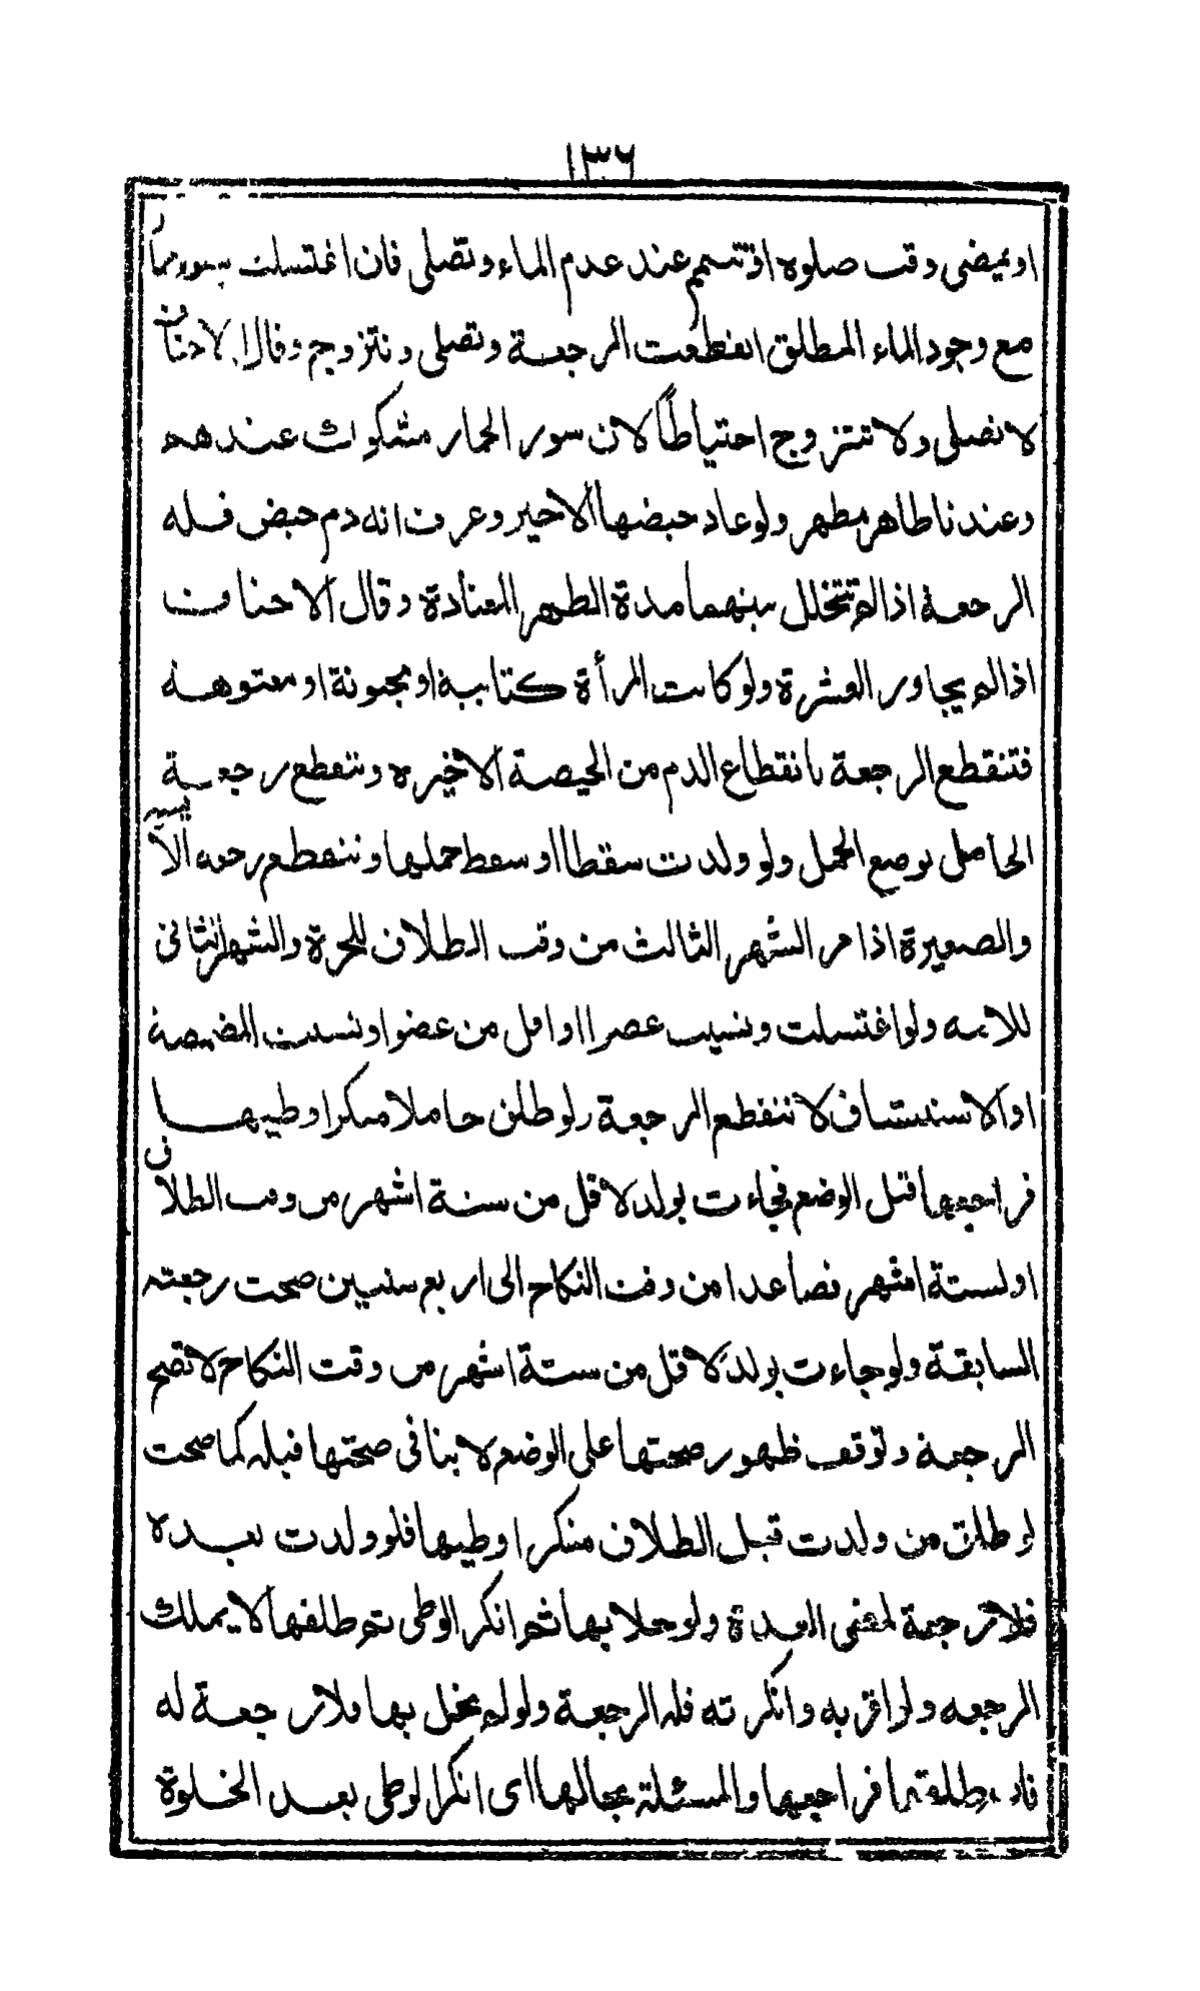 ١٣٦
او بمضى وقت صلوه او تتيمم عند عدم الماء وتصلى فان اغتسلت بسور حمار
مع وجود الماء المطلق انقطعت الرجعة وتصلى ونتزوجم وقال الاحناف
لا تصلى ولا تتزوج احتياطاً لان سور الحمار مشكوك عندهم
وعندنا طاهر مطهر ولو عاد حيضها الاخير وعرف انه دم حيض فله
الرجعة اذا لم تتخلل بينهما مدة الطهر المعتادة وقال الاحناف
اذا لم يجاور العشرة ولو كانت المرأة كتابية او مجنونة او معتوهة
فتنقطع الرجعة بانقطاع الدم من الحيصة الاخيره وتنقطع رجعية
الحامل بوضع الحمل ولو ولدت سقطا او سقط حملها وتنقطع رجعه الآيسه
والصغيرة اذا مر الشهر الثالث من وقت الطلاق للحرة والشهر الثانى
للامه ولو اغتسلت ونسيت عصرا او اقل من عضو او نسيت المضمضة
او الاستنشاق لا تنقطع الرجعة ولو طلق حاملا منكرا وطيها
فراجعها قبل الوضع فجاءت بولد لاقل من ستة اشهر من وقت الطلاق
او لستة اشهر فصاعدا من وقت النكاح الى اربع سنين صحت رجعته
السابقة ولو جاءت بولد لاقل من ستة اشهر من وقت النكاح لا تصح
الرجعة وتوقف ظهور صحتها على الوضع لا ينافى صحتها قبله كما صحت
لو طلق من ولدت قبل الطلاق منكرا وطيها فلو ولدت بعده
فلا رجعة لمضى العدة ولو خلا بها ثم انكر الوطى ثم طلقها لا يملك
الرجعه ولو اقر به وانكرته فله الرجعة ولو لم يخل بها فلا رجعة له
فان طلقها فراجعها والمسئلة بحالها اى انكر الوطى بعد الخلوة